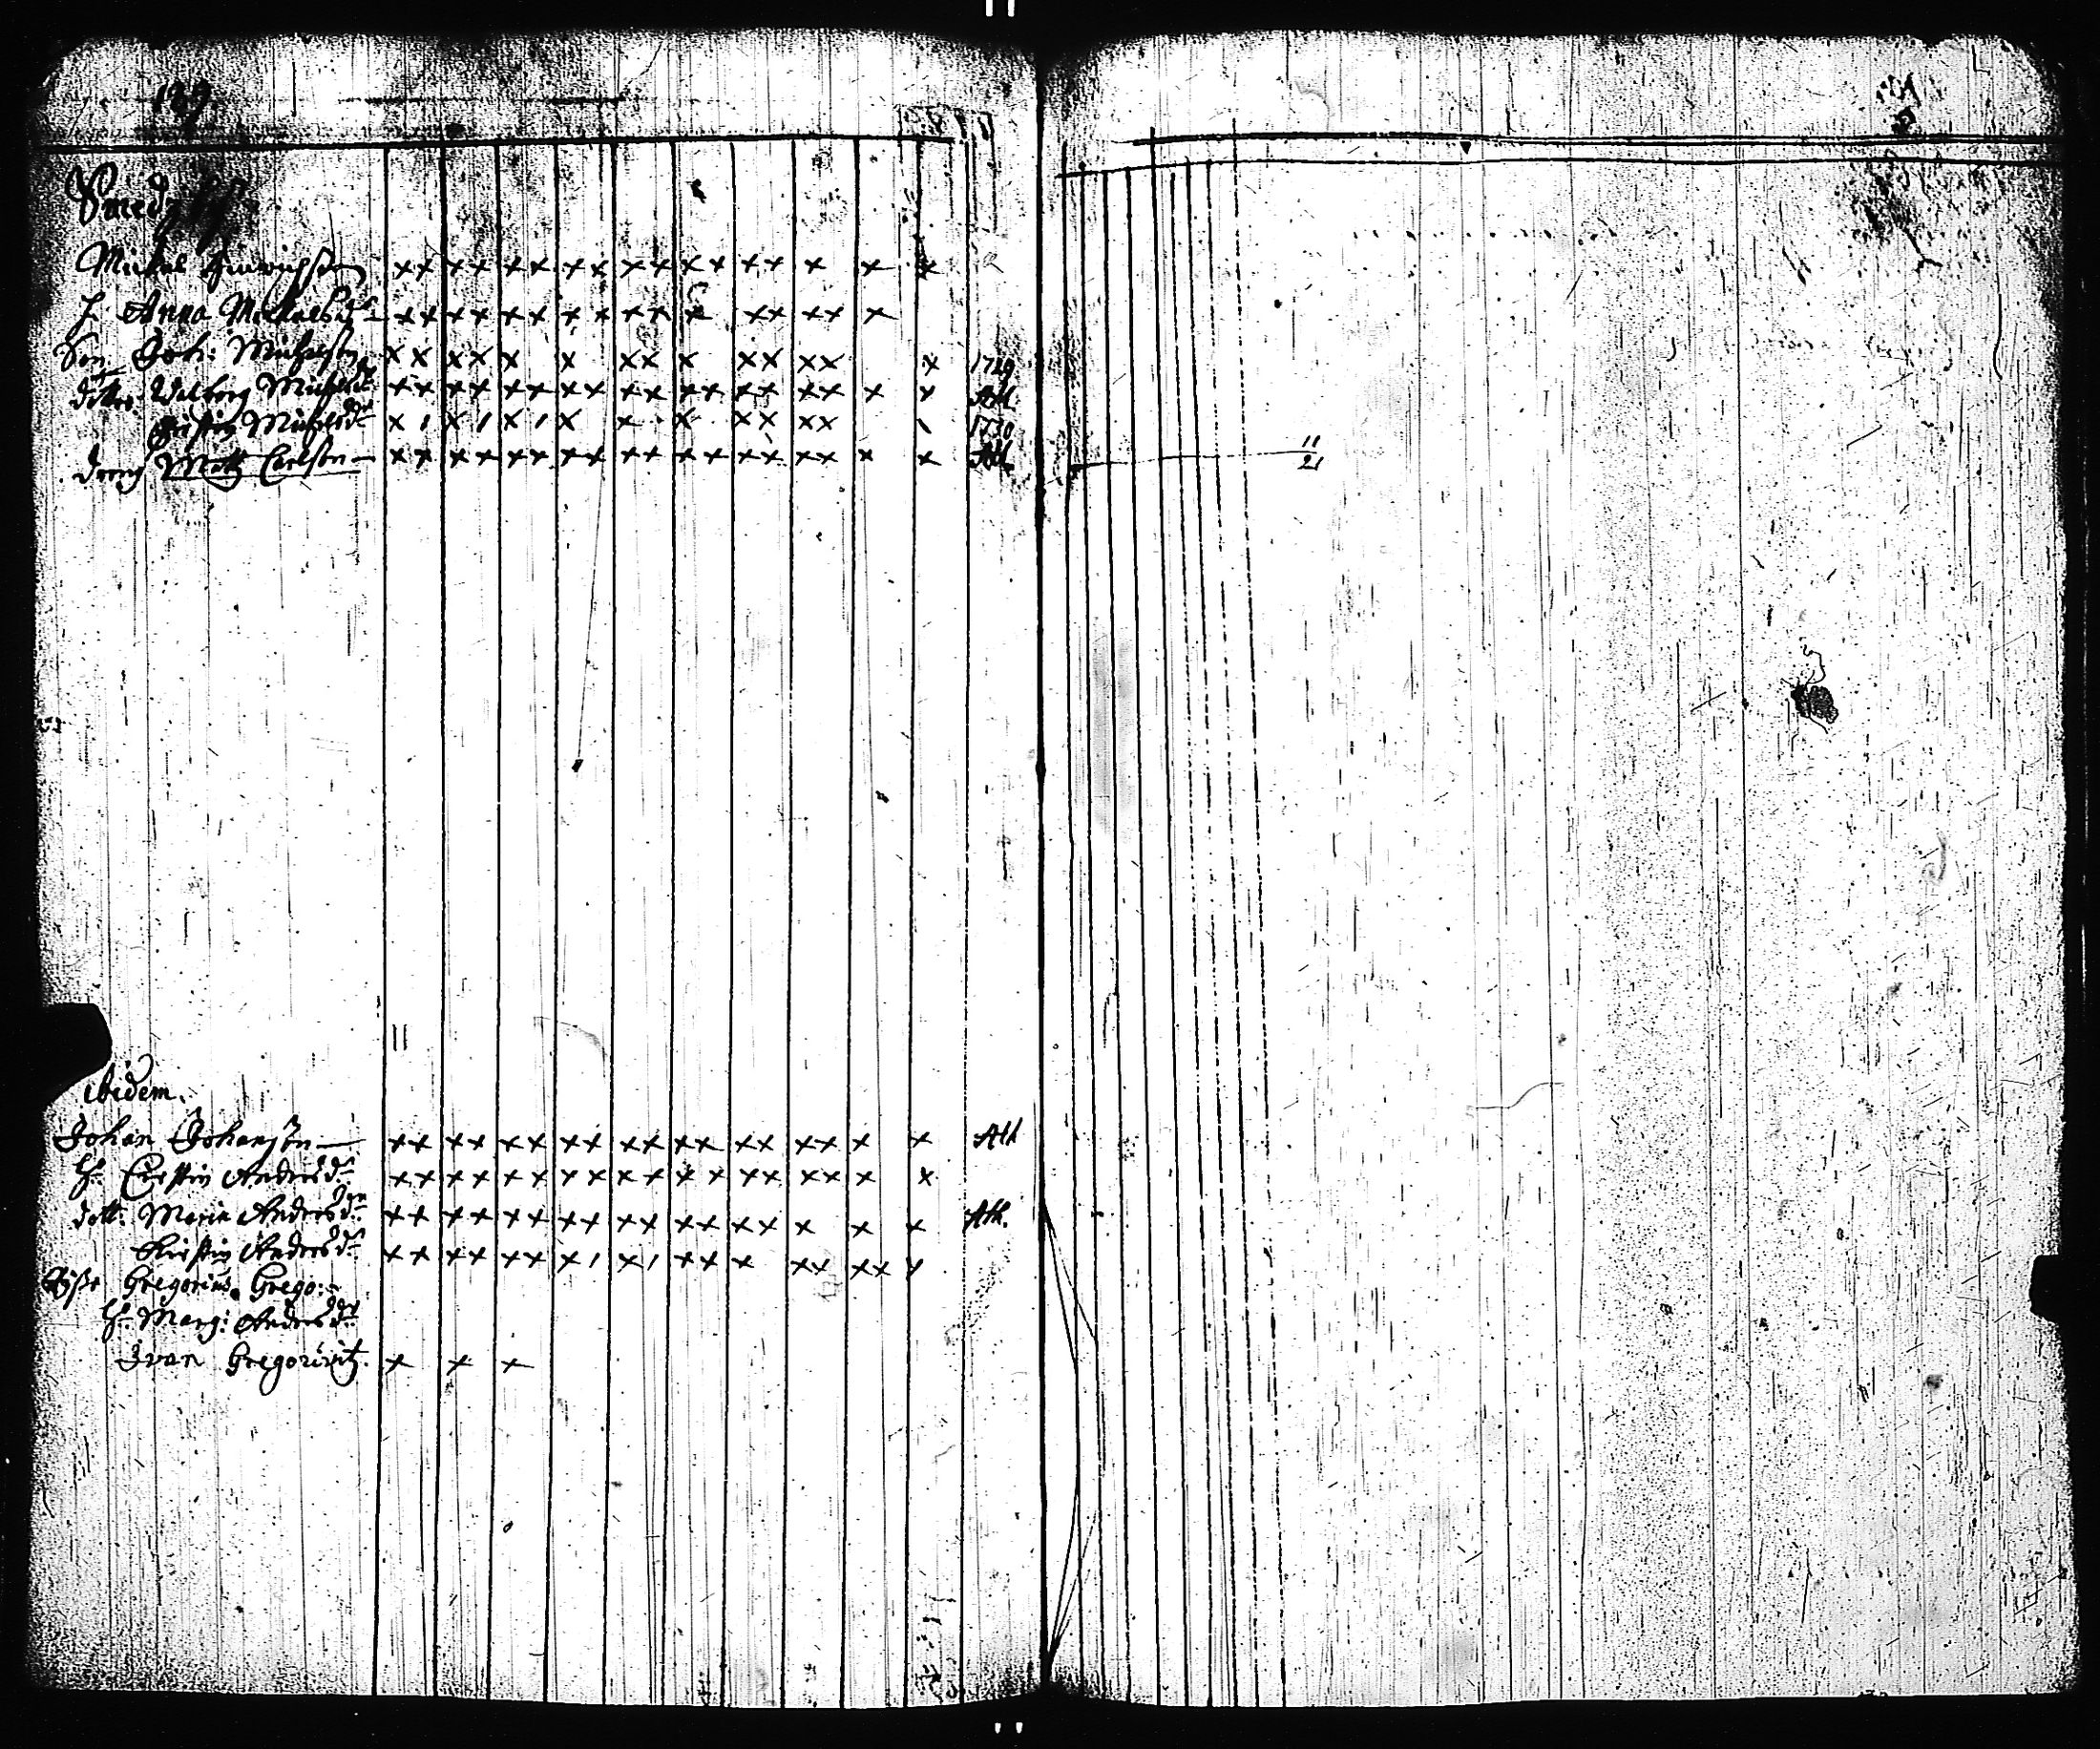 189.
Smedz
Mickel Hinrichson xx xx xx xx xx xx xx x x x
h. Anna Mickelsdr xx xx xx xx xx x xx xx x
Son Joh: Michelson xx xx x x xx x xx xx x 1729
dötter Walborg Michelsdr xx xx xx xx xx xx xx xx x x Abl.
Kirstin Michelsdr x 1 x 1 x 1 x x x xx xx 1 1730
dreng Mattz Carlson xx xx xx xx xx xx xx xx x x Abl. 11 21
ibidem.
Johan Johanson xx xx xx xx xx xx xx xx x x Abl
Hu Cirstin Andersdr xx xx xx xx xx xx xx xx x x
dott: Maria Andersdr xx xx xx xx xx xx xx x x x Abl.
Kirstin Andersdr xx xx xx x 1 x 1 xx x xx xx x
Gregorius Grego:
Hu Marg: Andersdr
Ivan Gregorivitz. x x x